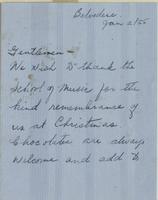 Belvedere.
Jan 2/55
Gentlemen -
We wish to thank the
School of Music for the
kind remembrance of
us at Christmas
Chocolates are always
welcome and add to